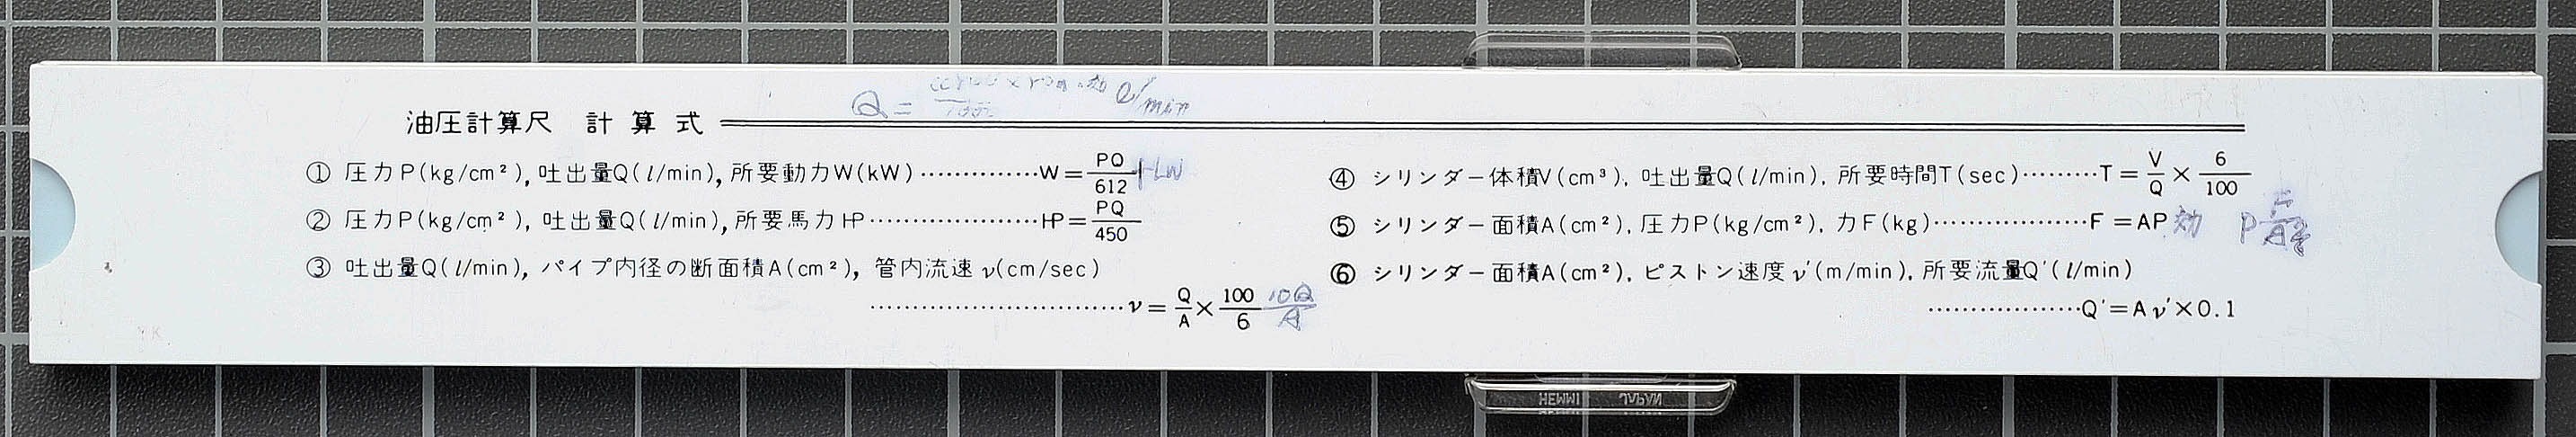 油圧計算尺 計算式
① 圧力P(kg/cm²), 吐出量Q(l/min), 所要動力W(kW) ··············W = PQ/612 + Lw
② 圧力P(kg/cm²), 吐出量Q(l/min), 所要馬力HP·····················HP = PQ/450
③ 吐出量Q(l/min), パイプ内径の断面積A(cm²), 管内流速 ν(cm/sec)
·······························ν = Q/A × 100/6 10Q/A
④ シリンダー体積V(cm³), 吐出量Q(l/min), 所要時間T(sec)·········T = V/Q × 6/100
⑤ シリンダー面積A(cm²), 圧力P(kg/cm²), 力F(kg)··················F = AP 効
⑥ シリンダー面積A(cm²), ピストン速度 ν′(m/min), 所要流量Q′(l/min)
··················Q′= A ν′×0.1
HEMMI JAPAN